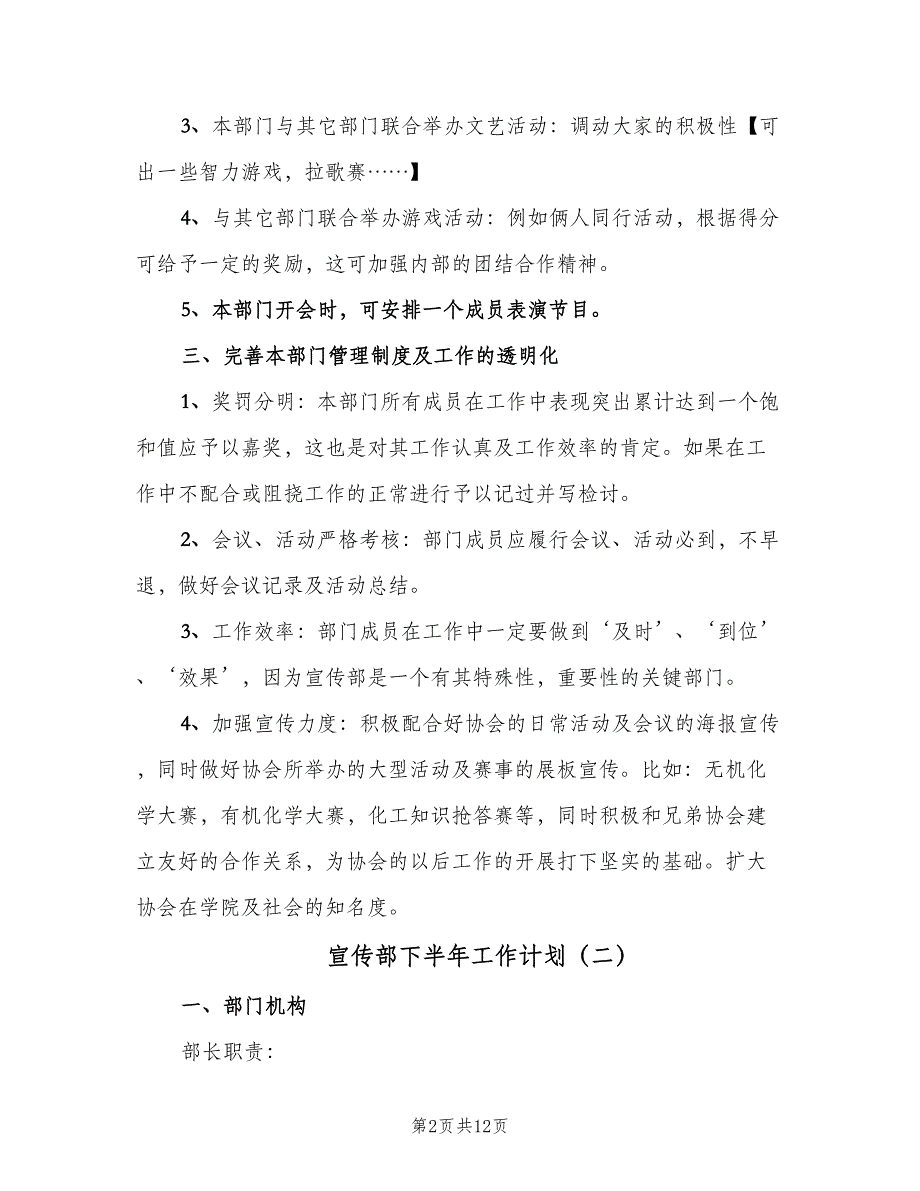 3、本部门与其它部门联合举办文艺活动：调动大家的积极性【可
出一些智力游戏，拉歌赛……】
4、与其它部门联合举办游戏活动：例如俩人同行活动，根据得分
可给予一定的奖励，这可加强内部的团结合作精神。
5、本部门开会时，可安排一个成员表演节目。
三、完善本部门管理制度及工作的透明化
1、奖罚分明：本部门所有成员在工作中表现突出累计达到一个饱
和值应予以嘉奖，这也是对其工作认真及工作效率的肯定。如果在工
作中不配合或阻挠工作的正常进行予以记过并写检讨。
2、会议、活动严格考核：部门成员应履行会议、活动必到，不早
退，做好会议记录及活动总结。
3、工作效率：部门成员在工作中一定要做到‘及时’、‘到位’
、‘效果’，因为宣传部是一个有其特殊性，重要性的关键部门。
4、加强宣传力度：积极配合好协会的日常活动及会议的海报宣传
，同时做好协会所举办的大型活动及赛事的展板宣传。比如：无机化
学大赛，有机化学大赛，化工知识抢答赛等，同时积极和兄弟协会建
立友好的合作关系，为协会的以后工作的开展打下坚实的基础。扩大
协会在学院及社会的知名度。
宣传部下半年工作计划（二）
一、部门机构
部长职责：
第2页共12页